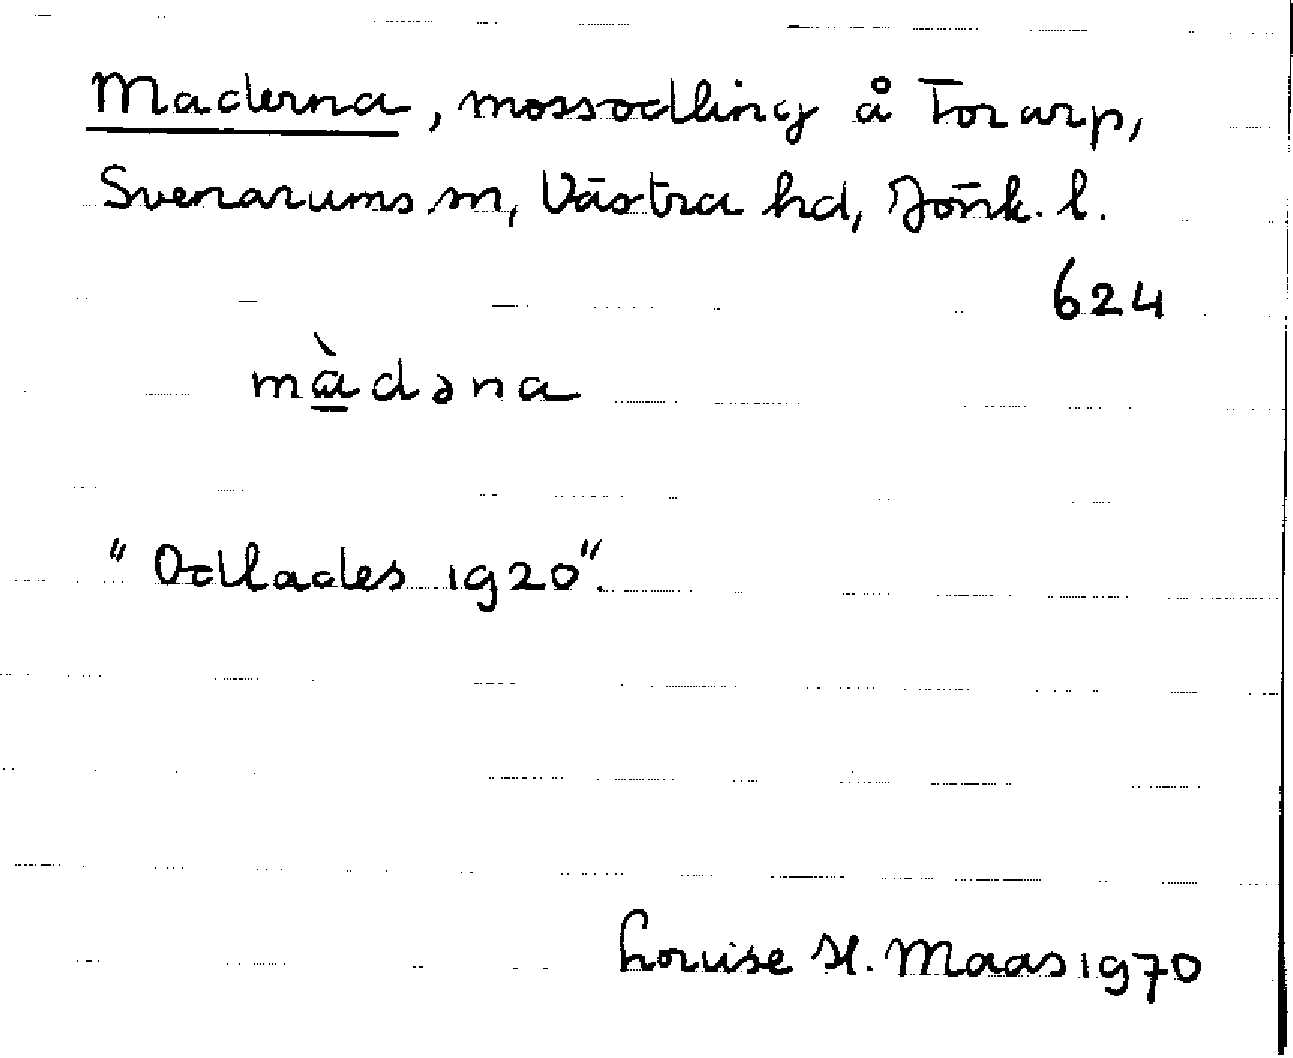 Maderna, mossodling å Torarp,
Svenarums sn, Västra hd, Jönk. l.
624
màdəna
"Odlades 1920".
Louise H. Maas 1970